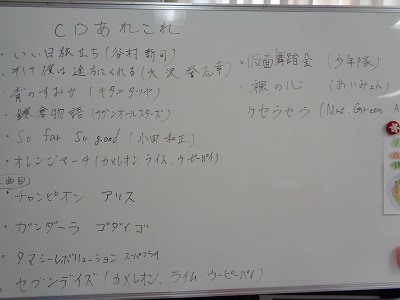 CDあれこれ
・いい日旅立ち (谷村新司)
・そして僕は途方にくれる (大沢誉志幸)
・青のすみか (キタニタツヤ)
・鎌倉物語 (サザンオールスターズ)
・So far So good (小田和正)
・オレンジマーチ (カメレオン ライム ウーピーパイ)
曲目
・チャンピオン アリス
・ガンダーラ ゴダイゴ
・タマシーレボリューション スーパーフライ
・セブンデイズ (カメレオン、ライム・ウーピーパイ)
・仮面舞踏会 (少年隊)
・裸の心 (あいみょん)
ケセラセラ (Mrs. Green A